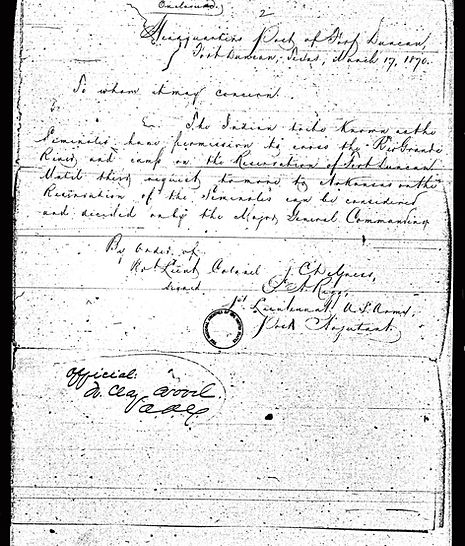 Enclosure.
2
Headquarters Post of Fort Duncan,
Fort Duncan, Texas, March 17, 1870.
To whom it may concern.
The Indian tribe known as the
Seminoles have permission to cross the Rio Grande
River and camp on the Reservation of Fort Duncan
Until their request to move to Arkansas or the
Reservation of the Seminoles can be considered
and decided on by the Major General Commanding
By order of
Lieut Colonel
signed
1st Lieutenant U.S. Army.
Post Adjutant.
Official:
Clay Wood
AAG